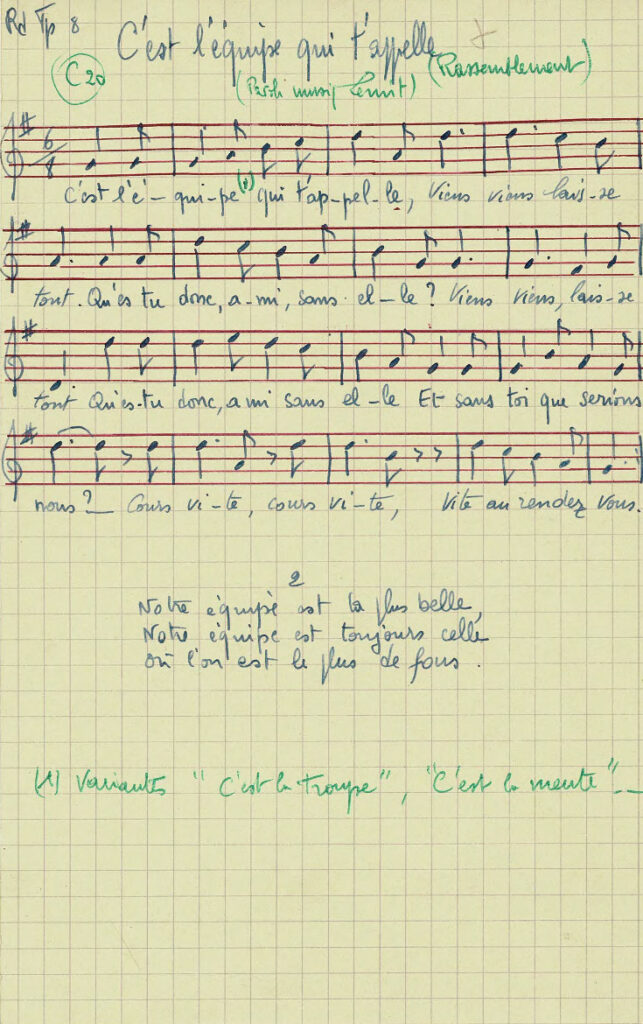 Rd Tp 8
C'est l'équipe qui t'appelle
C20
(Rassemblement)
(Parole musiq Lenoit)
6/8
C'est l'é-qui-pe (1) qui t'ap-pel-le, Viens viens lais-se
tout. Qu'es tu donc, a-mi, sans el-le? Viens viens, lais-se
tout Qu'es-tu donc, ami sans el-le Et sans toi que serions
nous?_ Cours vi-te, cours vi-te, Vite au rendez vous.
2
Notre équipe est la plus belle,
Notre équipe est toujours celle
où l'on est le plus de fous.
(1) Variantes "C'est la troupe", "C'est la meute"__